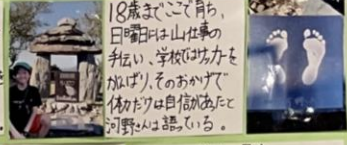 18歳までここで育ち、
日曜日には山仕事の
手伝い、学校ではサッカーを
がんばり、そのおかげで
体力だけは自信があったと
河野さんは語っている。